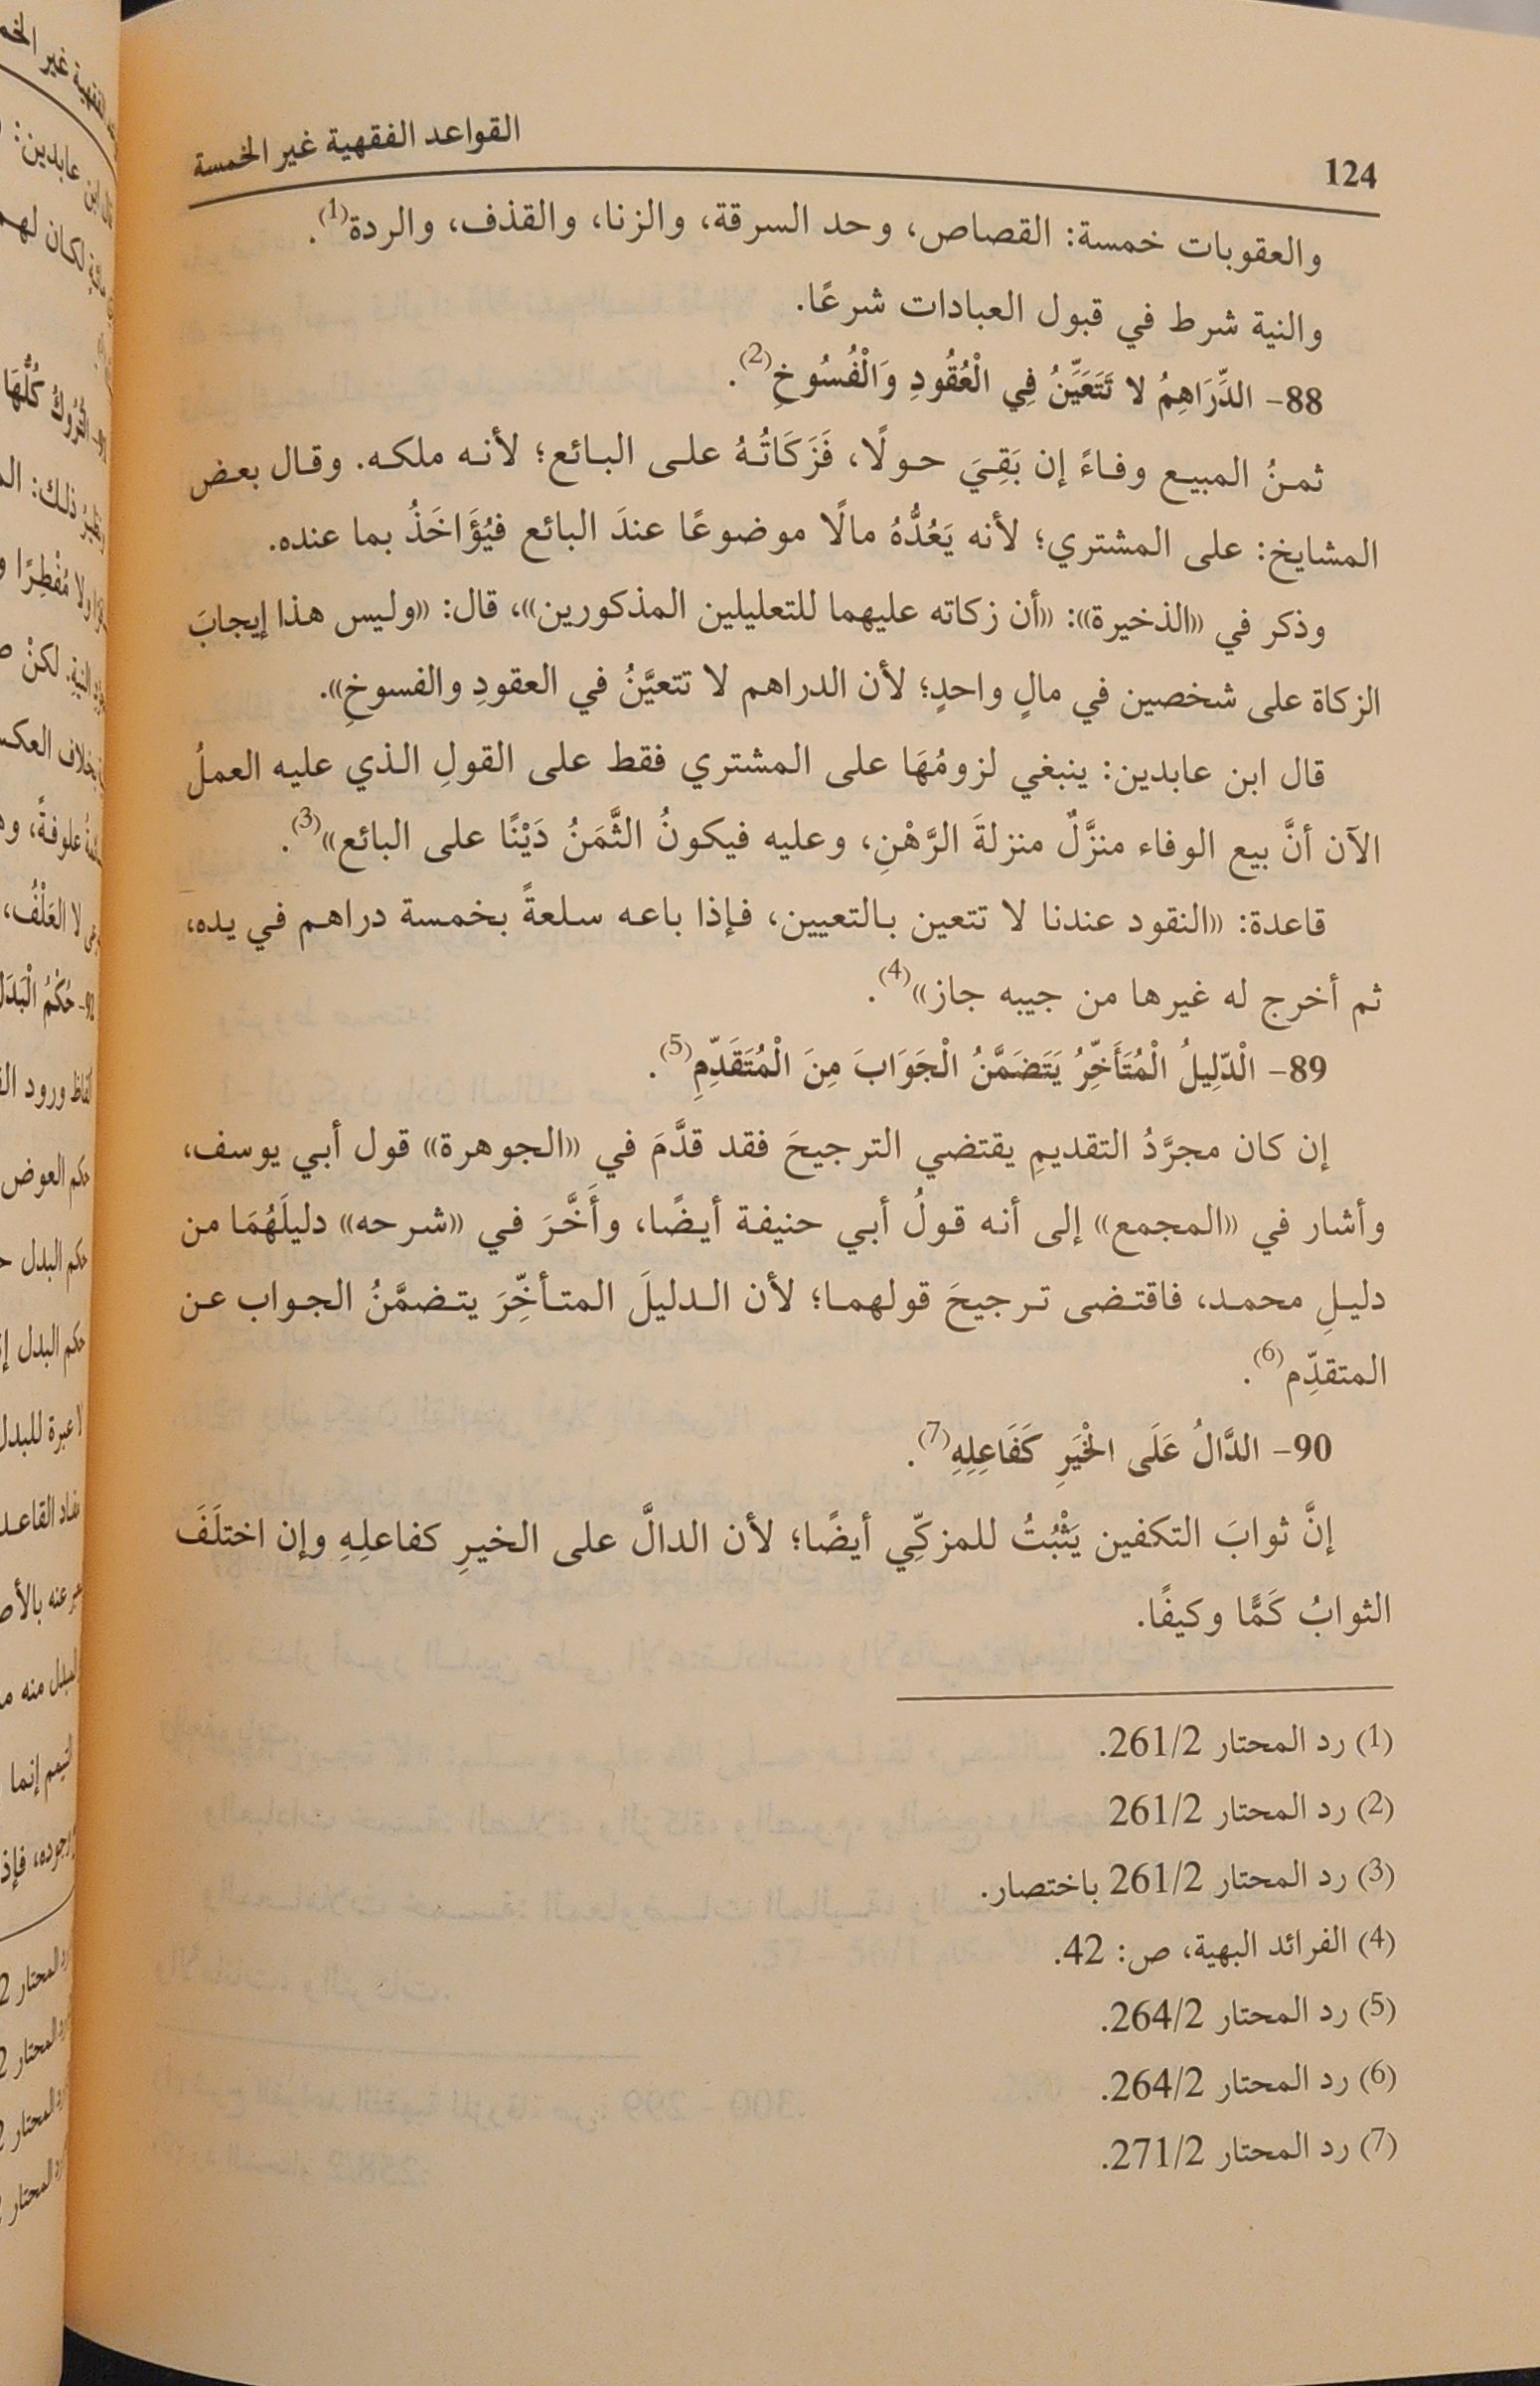 124
القواعد الفقهية غير الخمسة
والعقوبات خمسة: القصاص، وحد السرقة، والزنا، والقذف، والردة(1).
والنية شرط في قبول العبادات شرعًا.
88- الدَّرَاهِمُ لا تَتَعَيَّنُ فِي الْعُقُودِ وَالْفُسُوخِ(2).
ثمنُ المبيع وفاءً إن بَقِيَ حولًا، فَزَكَاتُهُ على البائع؛ لأنه ملكه. وقال بعض
المشايخ: على المشتري؛ لأنه يَعُدُّهُ مالًا موضوعًا عندَ البائع فيُؤَاخَذُ بما عنده.
وذكر في «الذخيرة»: «أن زكاته عليهما للتعليلين المذكورين»، قال: «وليس هذا إيجابَ
الزكاة على شخصين في مالٍ واحدٍ؛ لأن الدراهم لا تتعيَّنُ في العقودِ والفسوخِ».
قال ابن عابدين: ينبغي لزومُهَا على المشتري فقط على القولِ الذي عليه العملُ
الآن أنَّ بيع الوفاء منزَّلٌ منزلةَ الرَّهْنِ، وعليه فيكونُ الثَّمَنُ دَيْنًا على البائع»(3).
قاعدة: «النقود عندنا لا تتعين بالتعيين، فإذا باعه سلعةً بخمسة دراهم في يده،
ثم أخرج له غيرها من جيبه جاز»(4).
89- الْدّلِيلُ الْمُتَأَخِّرُ يَتَضَمَّنُ الْجَوَابَ مِنَ الْمُتَقَدِّمِ(5).
إن كان مجرَّدُ التقديمِ يقتضي الترجيحَ فقد قدَّمَ في «الجوهرة» قول أبي يوسف،
وأشار في «المجمع» إلى أنه قولُ أبي حنيفة أيضًا، وأَخَّرَ في «شرحه» دليلَهُمَا من
دليلِ محمد، فاقتضى ترجيحَ قولهما؛ لأن الدليلَ المتأخِّرَ يتضمَّنُ الجواب عن
المتقدِّم(6).
90- الدَّالُ عَلَى الْخَيَرِ كَفَاعِلِهِ(7).
إنَّ ثوابَ التكفين يَثْبُتُ للمزكِّي أيضًا؛ لأن الدالَّ على الخيرِ كفاعلِهِ وإن اختلَفَ
الثوابُ كَمًّا وكيفًا.
(1) رد المحتار 261/2.
(2) رد المحتار 261/2
(3) رد المحتار 261/2 باختصار.
(4) الفرائد البهية، ص: 42.
(5) رد المحتار 264/2.
(6) رد المحتار 264/2.
(7) رد المحتار 271/2.